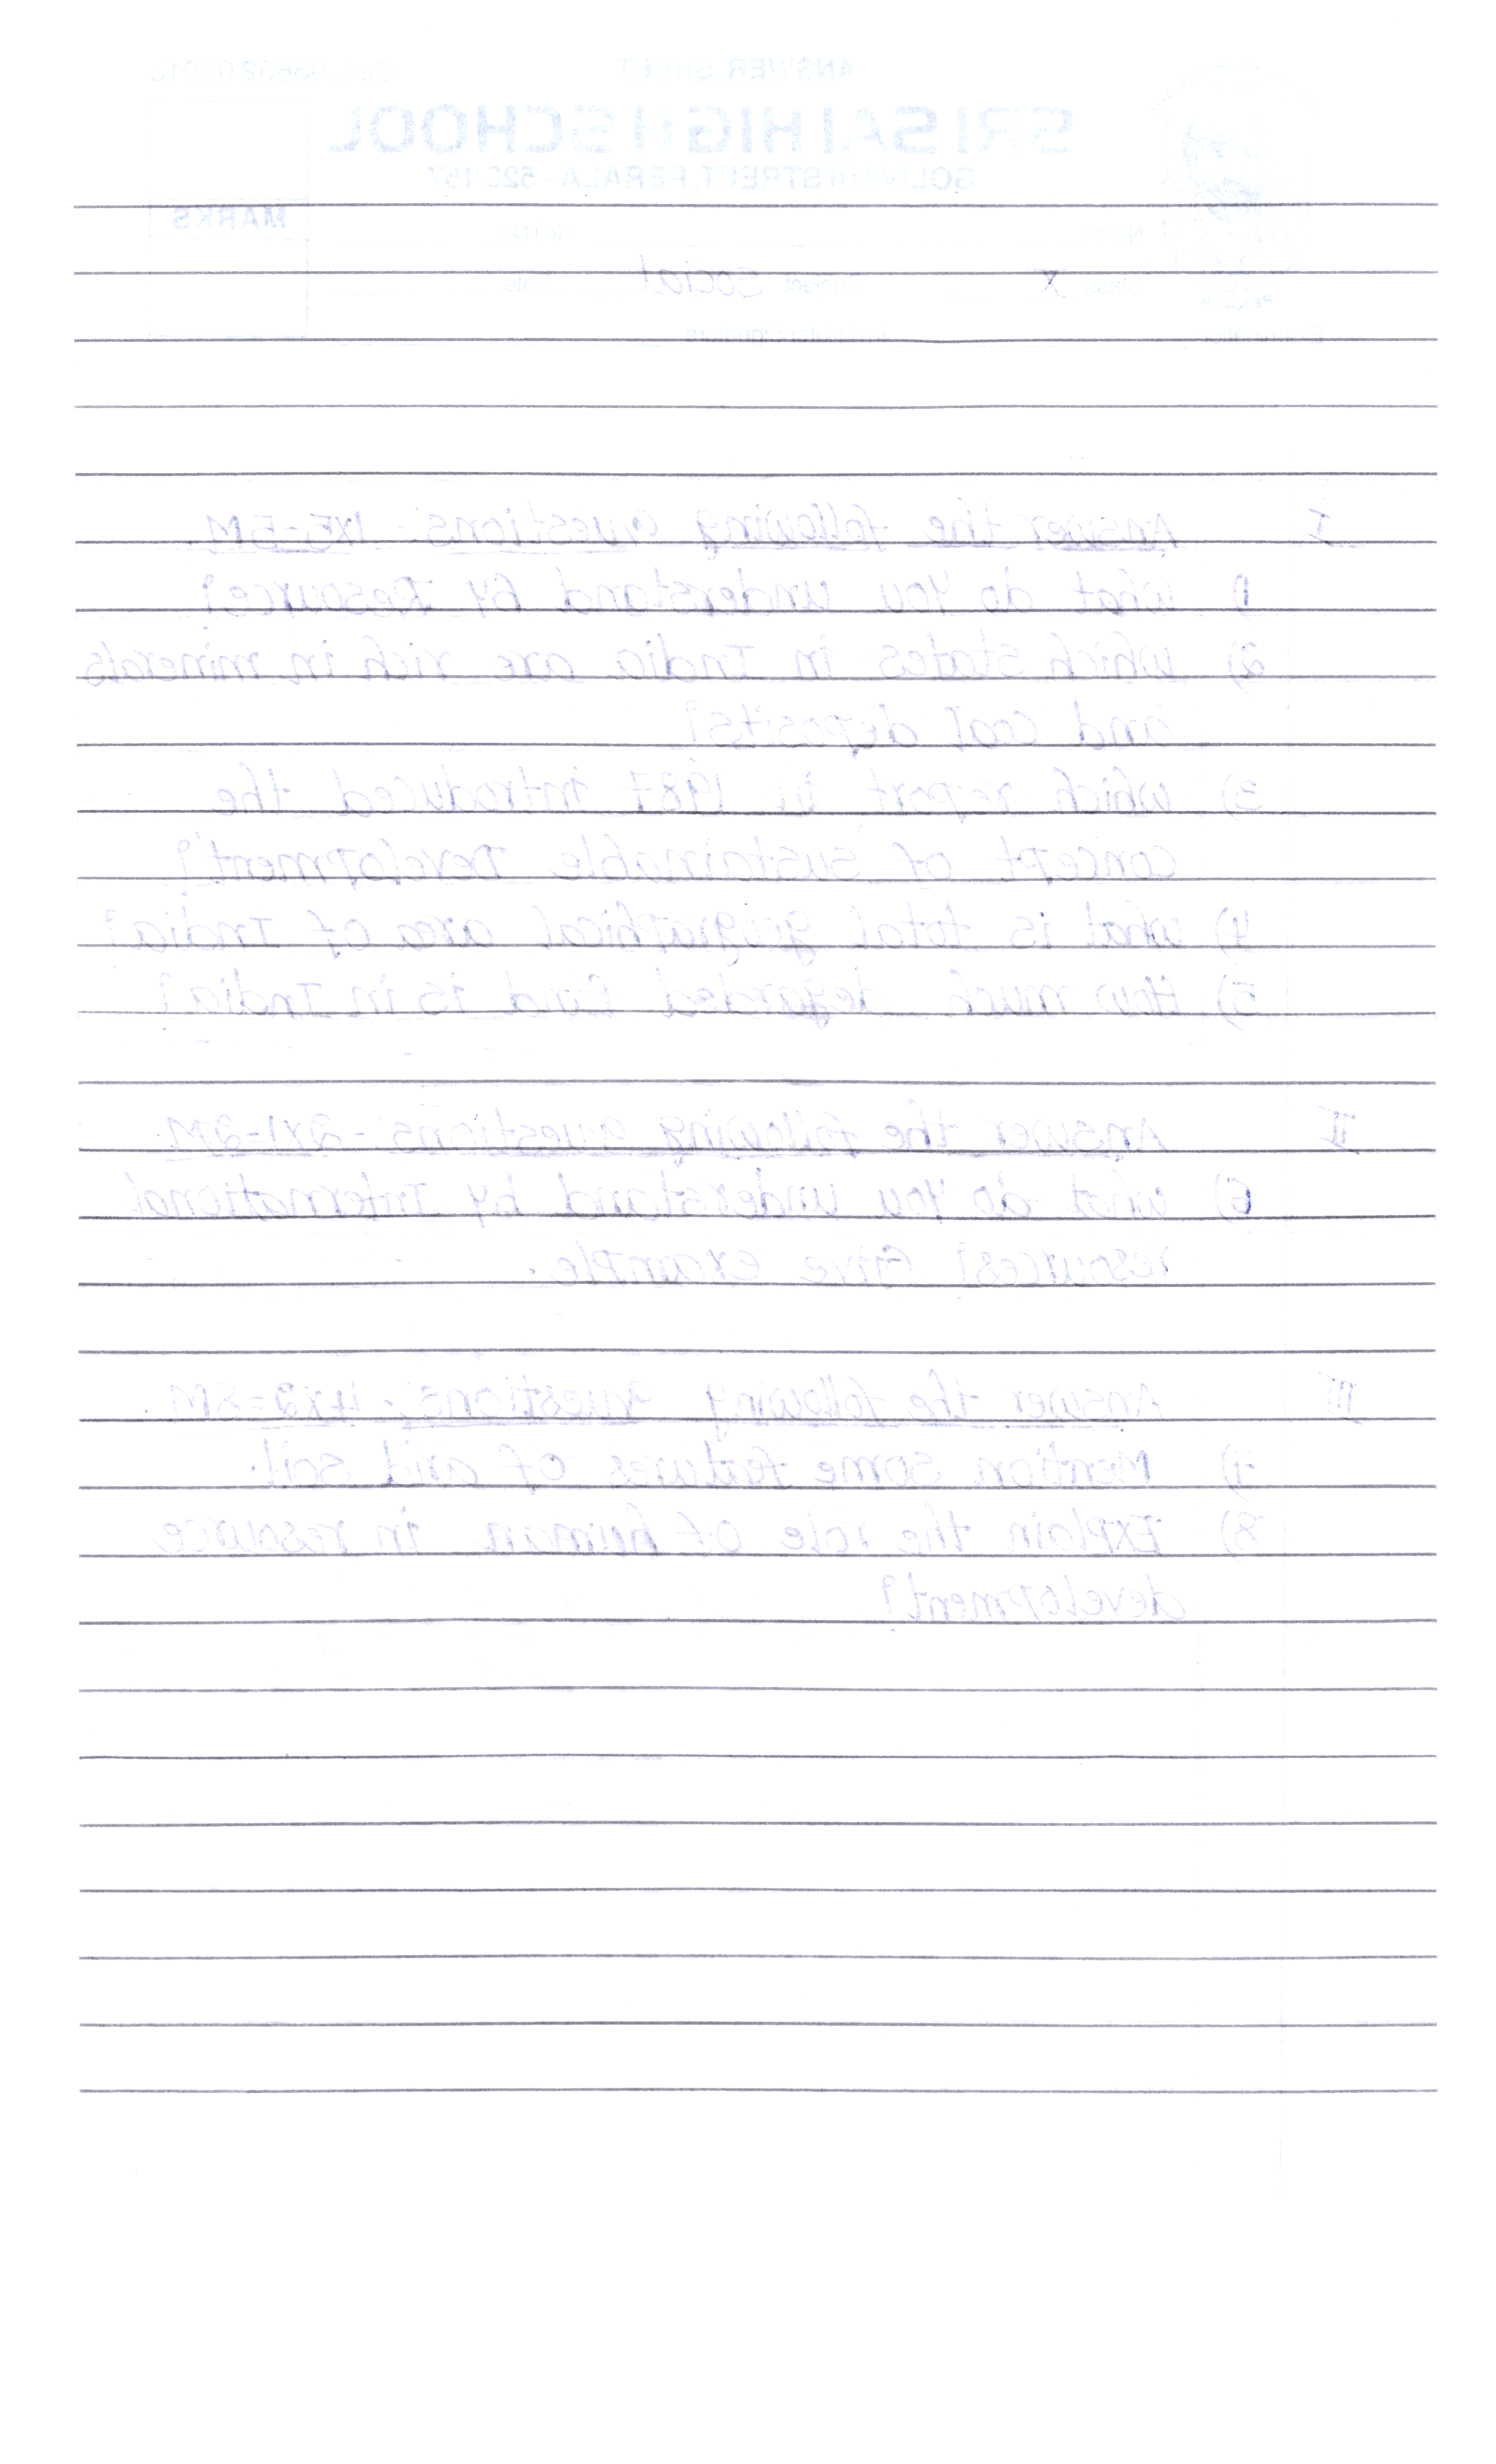 ANSWER SHEET
SRI SAI HIGH SCHOOL
STREET, PERALA - 523 157
MARKS
X Social
I Answer the following questions. 1x5=5M.
1) what do you understand by Resource?
2) which states in India are rich in minerals
and coal deposits?
3) which report in 1987 introduced the
concept of sustainable Development?
4) what is total geographical area of India?
5) How much degarded land is in India?
II Answer the following questions - 2x1=2M.
6) what do you understand by International
resources? Give example.
III Answer the following questions. 4x2=8M.
7) Mention some features of arid soil.
8) Explain the role of human in resource
development?